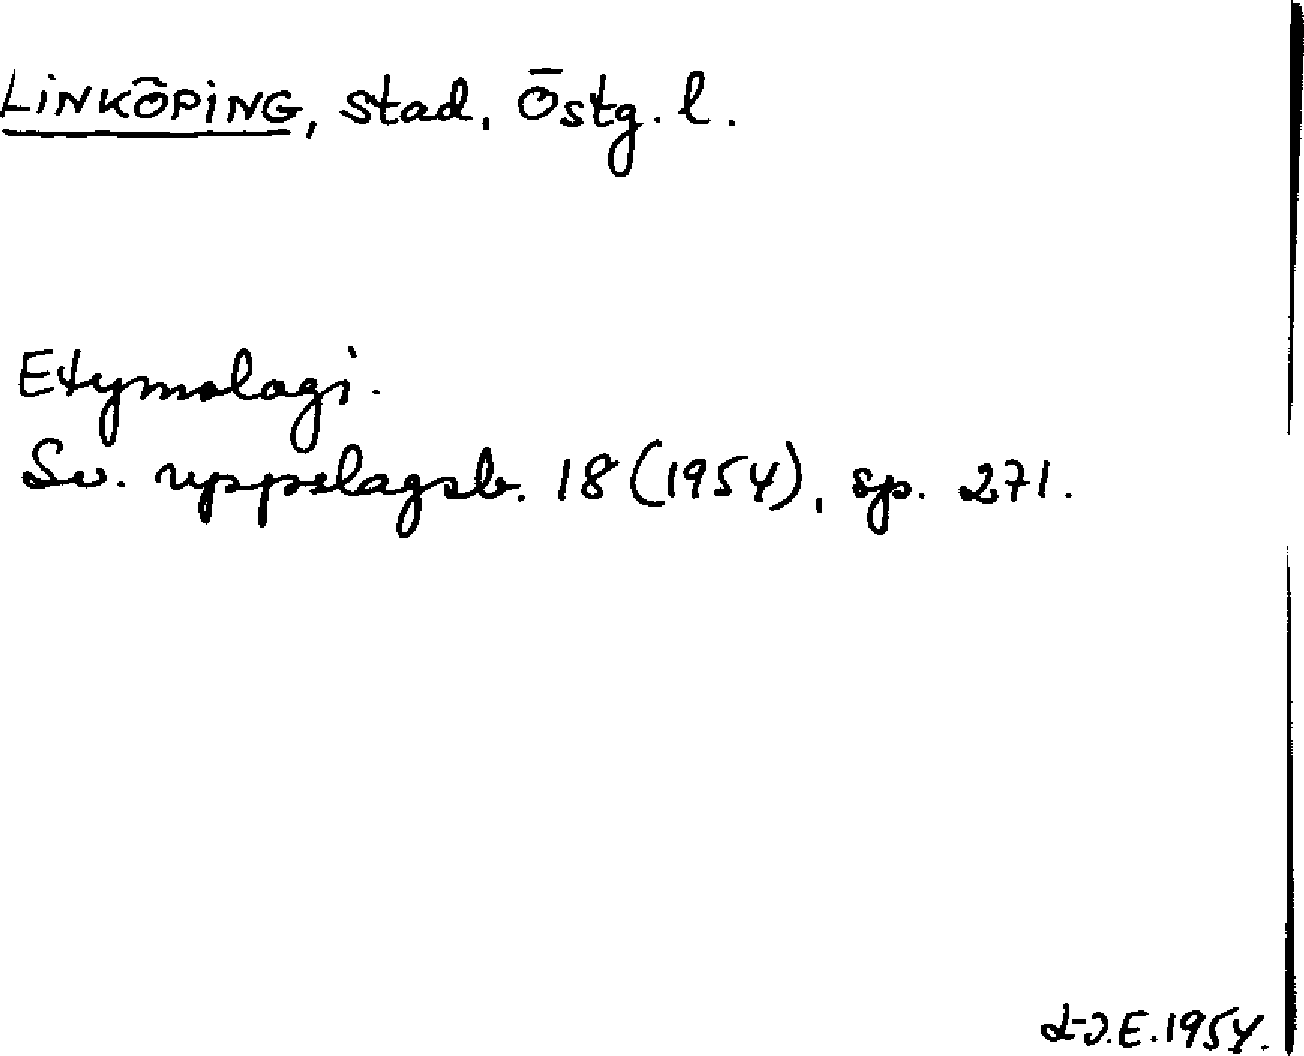 LINKÖPING, stad, Östg. l.
Etymologi.
Sv. uppslagsb. 18 (1954), sp. 271.
E. 1954.